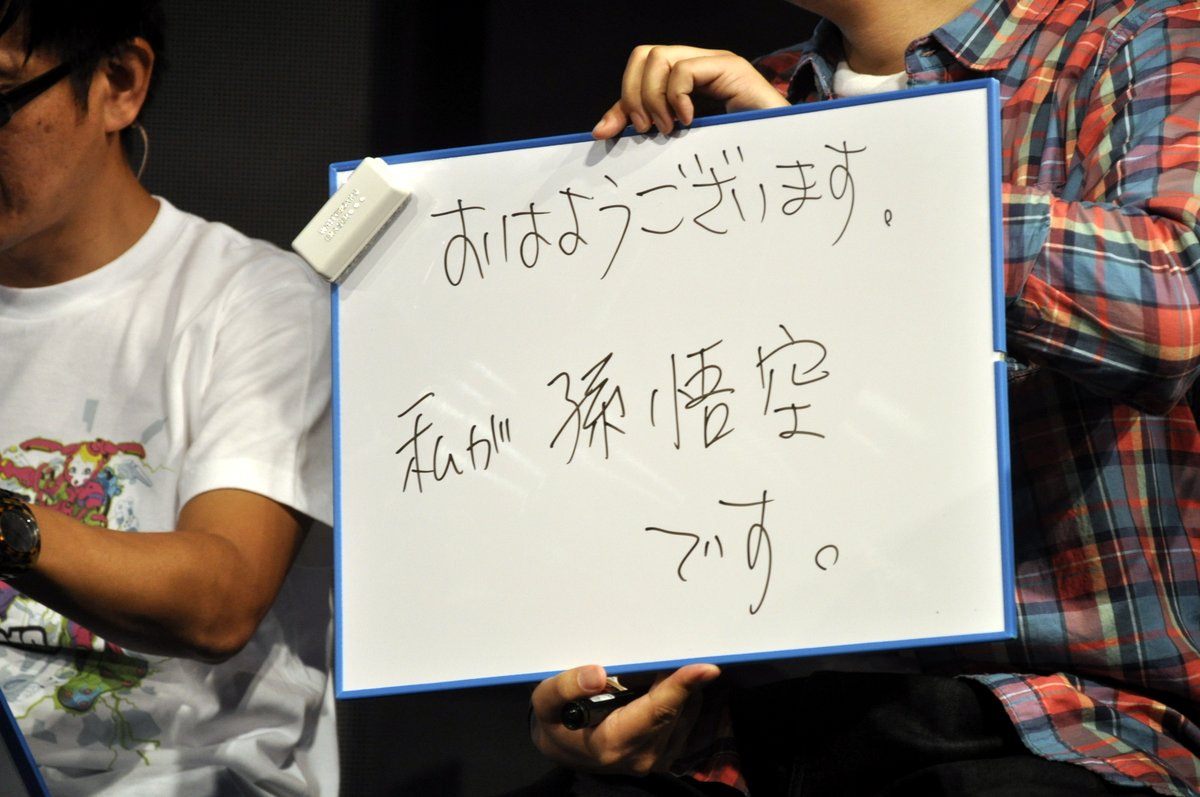 おはようございます.
私が孫悟空
です。